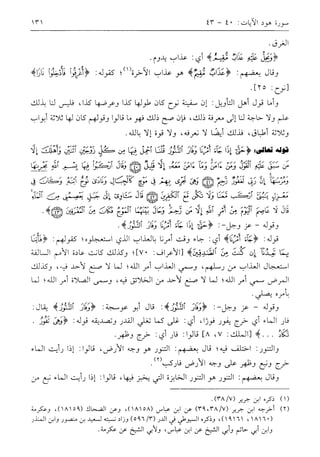 سورة هود الآيات: ٤٠ - ٤٣
١٣١
الغرق.
﴿وَيَحِلُّ عَلَيْهِ عَذَابٌ مُّقِيمٌ﴾ أي: عذاب يدوم.
وقال بعضهم: ﴿عَذَابٌ مُّقِيمٌ﴾ هو عذاب الآخرة(١)؛ كقوله: ﴿أُغْرِقُوا فَأُدْخِلُوا نَارًا﴾
[نوح: ٢٥].
وأما قول أهل التأويل: إن سفينة نوح كان طولها كذا وعرضها كذا، فليس لنا بذلك
علم ولا حاجة لنا إلى معرفة ذلك، فإن صح ذلك فهو ما قالوا وقولهم كان لها ثلاثة أبواب
وثلاثة أطباق، فذلك أيضًا لا نعرفه، ولا قوة إلا بالله.
قوله تعالى: ﴿حَتَّىٰ إِذَا جَاءَ أَمْرُنَا وَفَارَ التَّنُّورُ قُلْنَا احْمِلْ فِيهَا مِن كُلٍّ زَوْجَيْنِ اثْنَيْنِ وَأَهْلَكَ إِلَّا
مَن سَبَقَ عَلَيْهِ الْقَوْلُ وَمَنْ آمَنَ وَمَا آمَنَ مَعَهُ إِلَّا قَلِيلٌ ۝ وَقَالَ ارْكَبُوا فِيهَا بِسْمِ اللَّهِ مَجْرَاهَا
وَمُرْسَاهَا إِنَّ رَبِّي لَغَفُورٌ رَّحِيمٌ ۝ وَهِيَ تَجْرِي بِهِمْ فِي مَوْجٍ كَالْجِبَالِ وَنَادَىٰ نُوحٌ ابْنَهُ وَكَانَ فِي
مَعْزِلٍ يَا بُنَيَّ ارْكَب مَّعَنَا وَلَا تَكُن مَّعَ الْكَافِرِينَ ۝ قَالَ سَآوِي إِلَىٰ جَبَلٍ يَعْصِمُنِي مِنَ الْمَاءِ
قَالَ لَا عَاصِمَ الْيَوْمَ مِنْ أَمْرِ اللَّهِ إِلَّا مَن رَّحِمَ وَحَالَ بَيْنَهُمَا الْمَوْجُ فَكَانَ مِنَ الْمُغْرَقِينَ ۝﴾.
وقوله - عز وجل -: ﴿حَتَّىٰ إِذَا جَاءَ أَمْرُنَا وَفَارَ التَّنُّورُ﴾.
قوله: ﴿جَاءَ أَمْرُنَا﴾ أي: جاء وقت أمرنا بالعذاب الذي استعجلوه؛ كقولهم: ﴿فَأْتِنَا
بِمَا تَعِدُنَا إِن كُنتَ مِنَ الصَّادِقِينَ﴾ [الأعراف: ٧٠]؛ وكذلك كانت عادة الأمم السالفة
استعجال العذاب من رسلهم، وسمى العذاب أمر الله؛ لما لا صنع لأحد فيه، وكذلك
المرض سمي أمر الله؛ لما لا صنع لأحد من الخلائق فيه، وسمى الصلاة أمر الله؛ لما
بأمره يصلي.
وقوله - عز وجل -: ﴿وَفَارَ التَّنُّورُ﴾: قال أبو عوسجة: ﴿وَفَارَ التَّنُّورُ﴾ يقال:
فار الماء أي خرج يفور فورًا، أي: غلى كما تغلي القدر وتصديقه قوله: ﴿وَهِيَ تَفُورُ .
تَكَادُ . . .﴾ [الملك: ٧، ٨] قالوا: فار أي: خرج وظهر.
والتنور: اختلف فيه؛ قال بعضهم: التنور هو وجه الأرض، قالوا: إذا رأيت الماء
خرج ونبع وظهر على وجه الأرض فاركب(٢).
وقال بعضهم: التنور هو التنور الخابزة التي يختبز فيها، قالوا: إذا رأيت الماء نبع من
(١) ذكره ابن جرير (٣٨/٧).
(٢) أخرجه ابن جرير (٣٨/٧، ٣٩) عن ابن عباس (١٨١٥٨)، وعن الضحاك (١٨١٥٩)، وعكرمة
(١٨١٦٠، ١٩١٦١)، وذكره السيوطي في الدر (٥٩٦/٣) وزاد نسبته لسعيد بن منصور وابن المنذر
وابن أبي حاتم وأبي الشيخ عن ابن عباس، ولأبي الشيخ عن عكرمة.